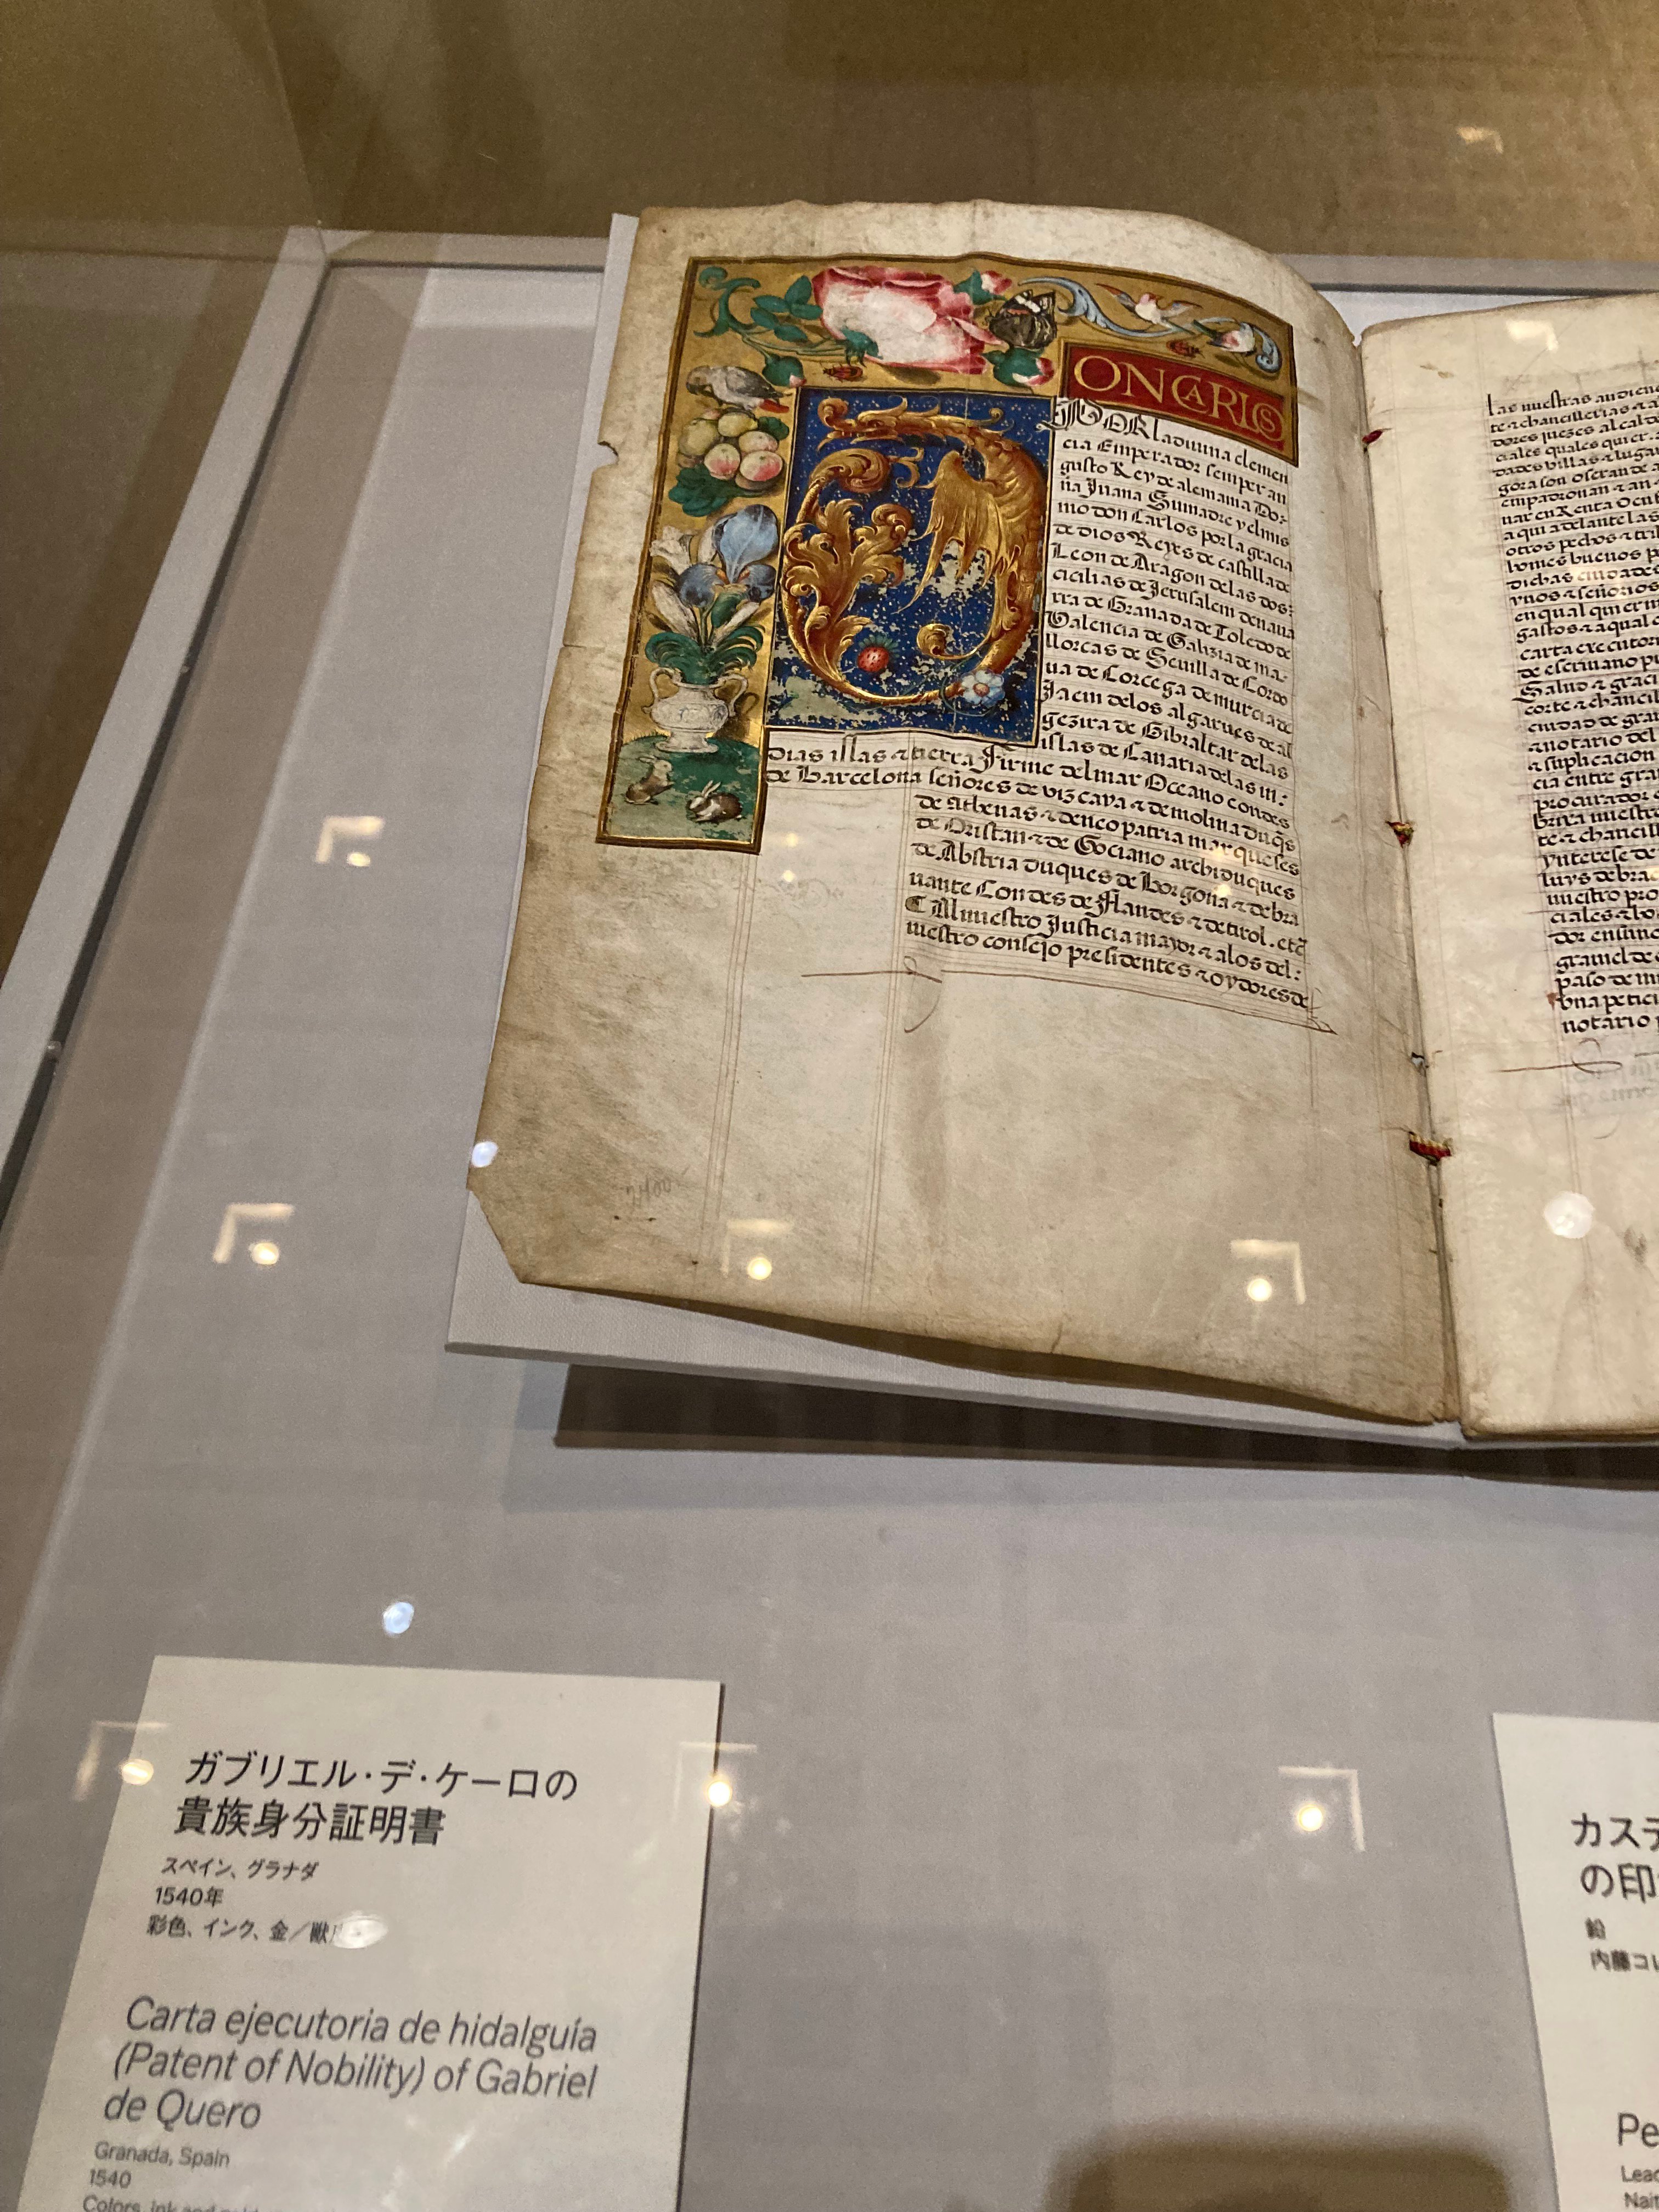 ONCARLOS
POR la diuina clemen
cia Emperador semper au
gusto Rey de alemania Do-
ña Juana Su madre y el mis
mo don Carlos por la gracia
de dios Reyes de castilla de
Leon de Aragon de las dos
cicilias de Jerusalem de naua
rra de Granada de Toledo de
Valencia de Galizia de ma-
llorcas de Seuilla de Cordo
ua de Corcega de murcia de
Jaem de los algarues de al
gezira de Gibraltar de las
islas de Canaria de las in:
dias islas ⁊ tierra Firme del mar Oceano condes
de Barcelona señores de vizcaya ⁊ de molina duq̃s
de athenas ⁊ de neo patria marqueses
de Oristan ⁊ de Gociano archiduques
de Abstria duques de borgoña ⁊ de bra
uante Condes de Flandes ⁊ de tirol. etc̃
Al nuestro Justicia mayor ⁊ a los del:
nuestro consejo presidentes ⁊ oydores de
las nuestras audienc
te ⁊ chancillerias ⁊ a
dores juezes alcalde
ciales quales quier
dades villas ⁊ lugar
gora son o seran de a
empadronan ⁊ an
nar en Renta o en
a qui adelante las
otros pechos ⁊ tri
homes buenos p
dichas ciudades
ynos ⁊ señorios
en qual quier m
gastos ⁊ a qual
carta executor
de escriuano pu
Salud ⁊ graci
corte ⁊ chancil
ciudad de gra
⁊ notario del
⁊ suplicacion
cia entre gra
procurador
nuestr
te ⁊ chancill
ynterese de
luys de brac
nuestro pro
ciales ⁊ ho
dor en su no
grauiel de
paso de m
vna petici
notario
ガブリエル・デ・ケーロの
貴族身分証明書
スペイン、グラナダ
1540年
彩色、インク、金／獣
Carta ejecutoria de hidalguía
(Patent of Nobility) of Gabriel
de Quero
Granada, Spain
1540
Colors, ink and gold
カステ
の印
鉛
内藤コレ
Pe
Lead
Nai